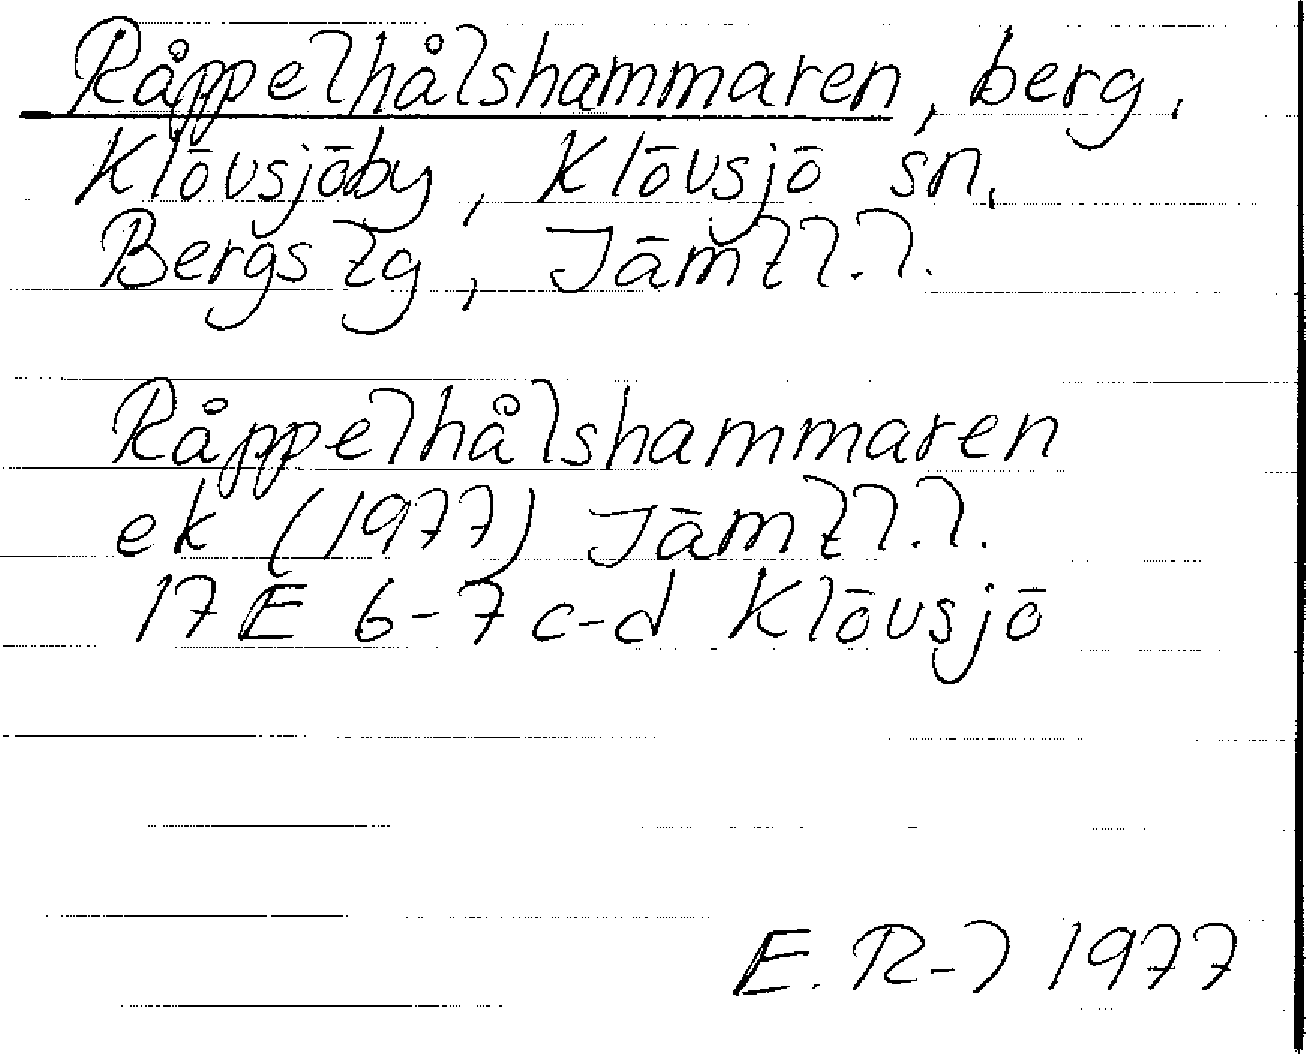 Råppelhålshammaren, berg,
Klövsjöby, Klövsjö sn,
Bergs tg, Jämtl.l.
Råppelhålshammaren
ek (1977) Jämtl.l.
17E 6-7 c-d Klövsjö
E. R-l 1977